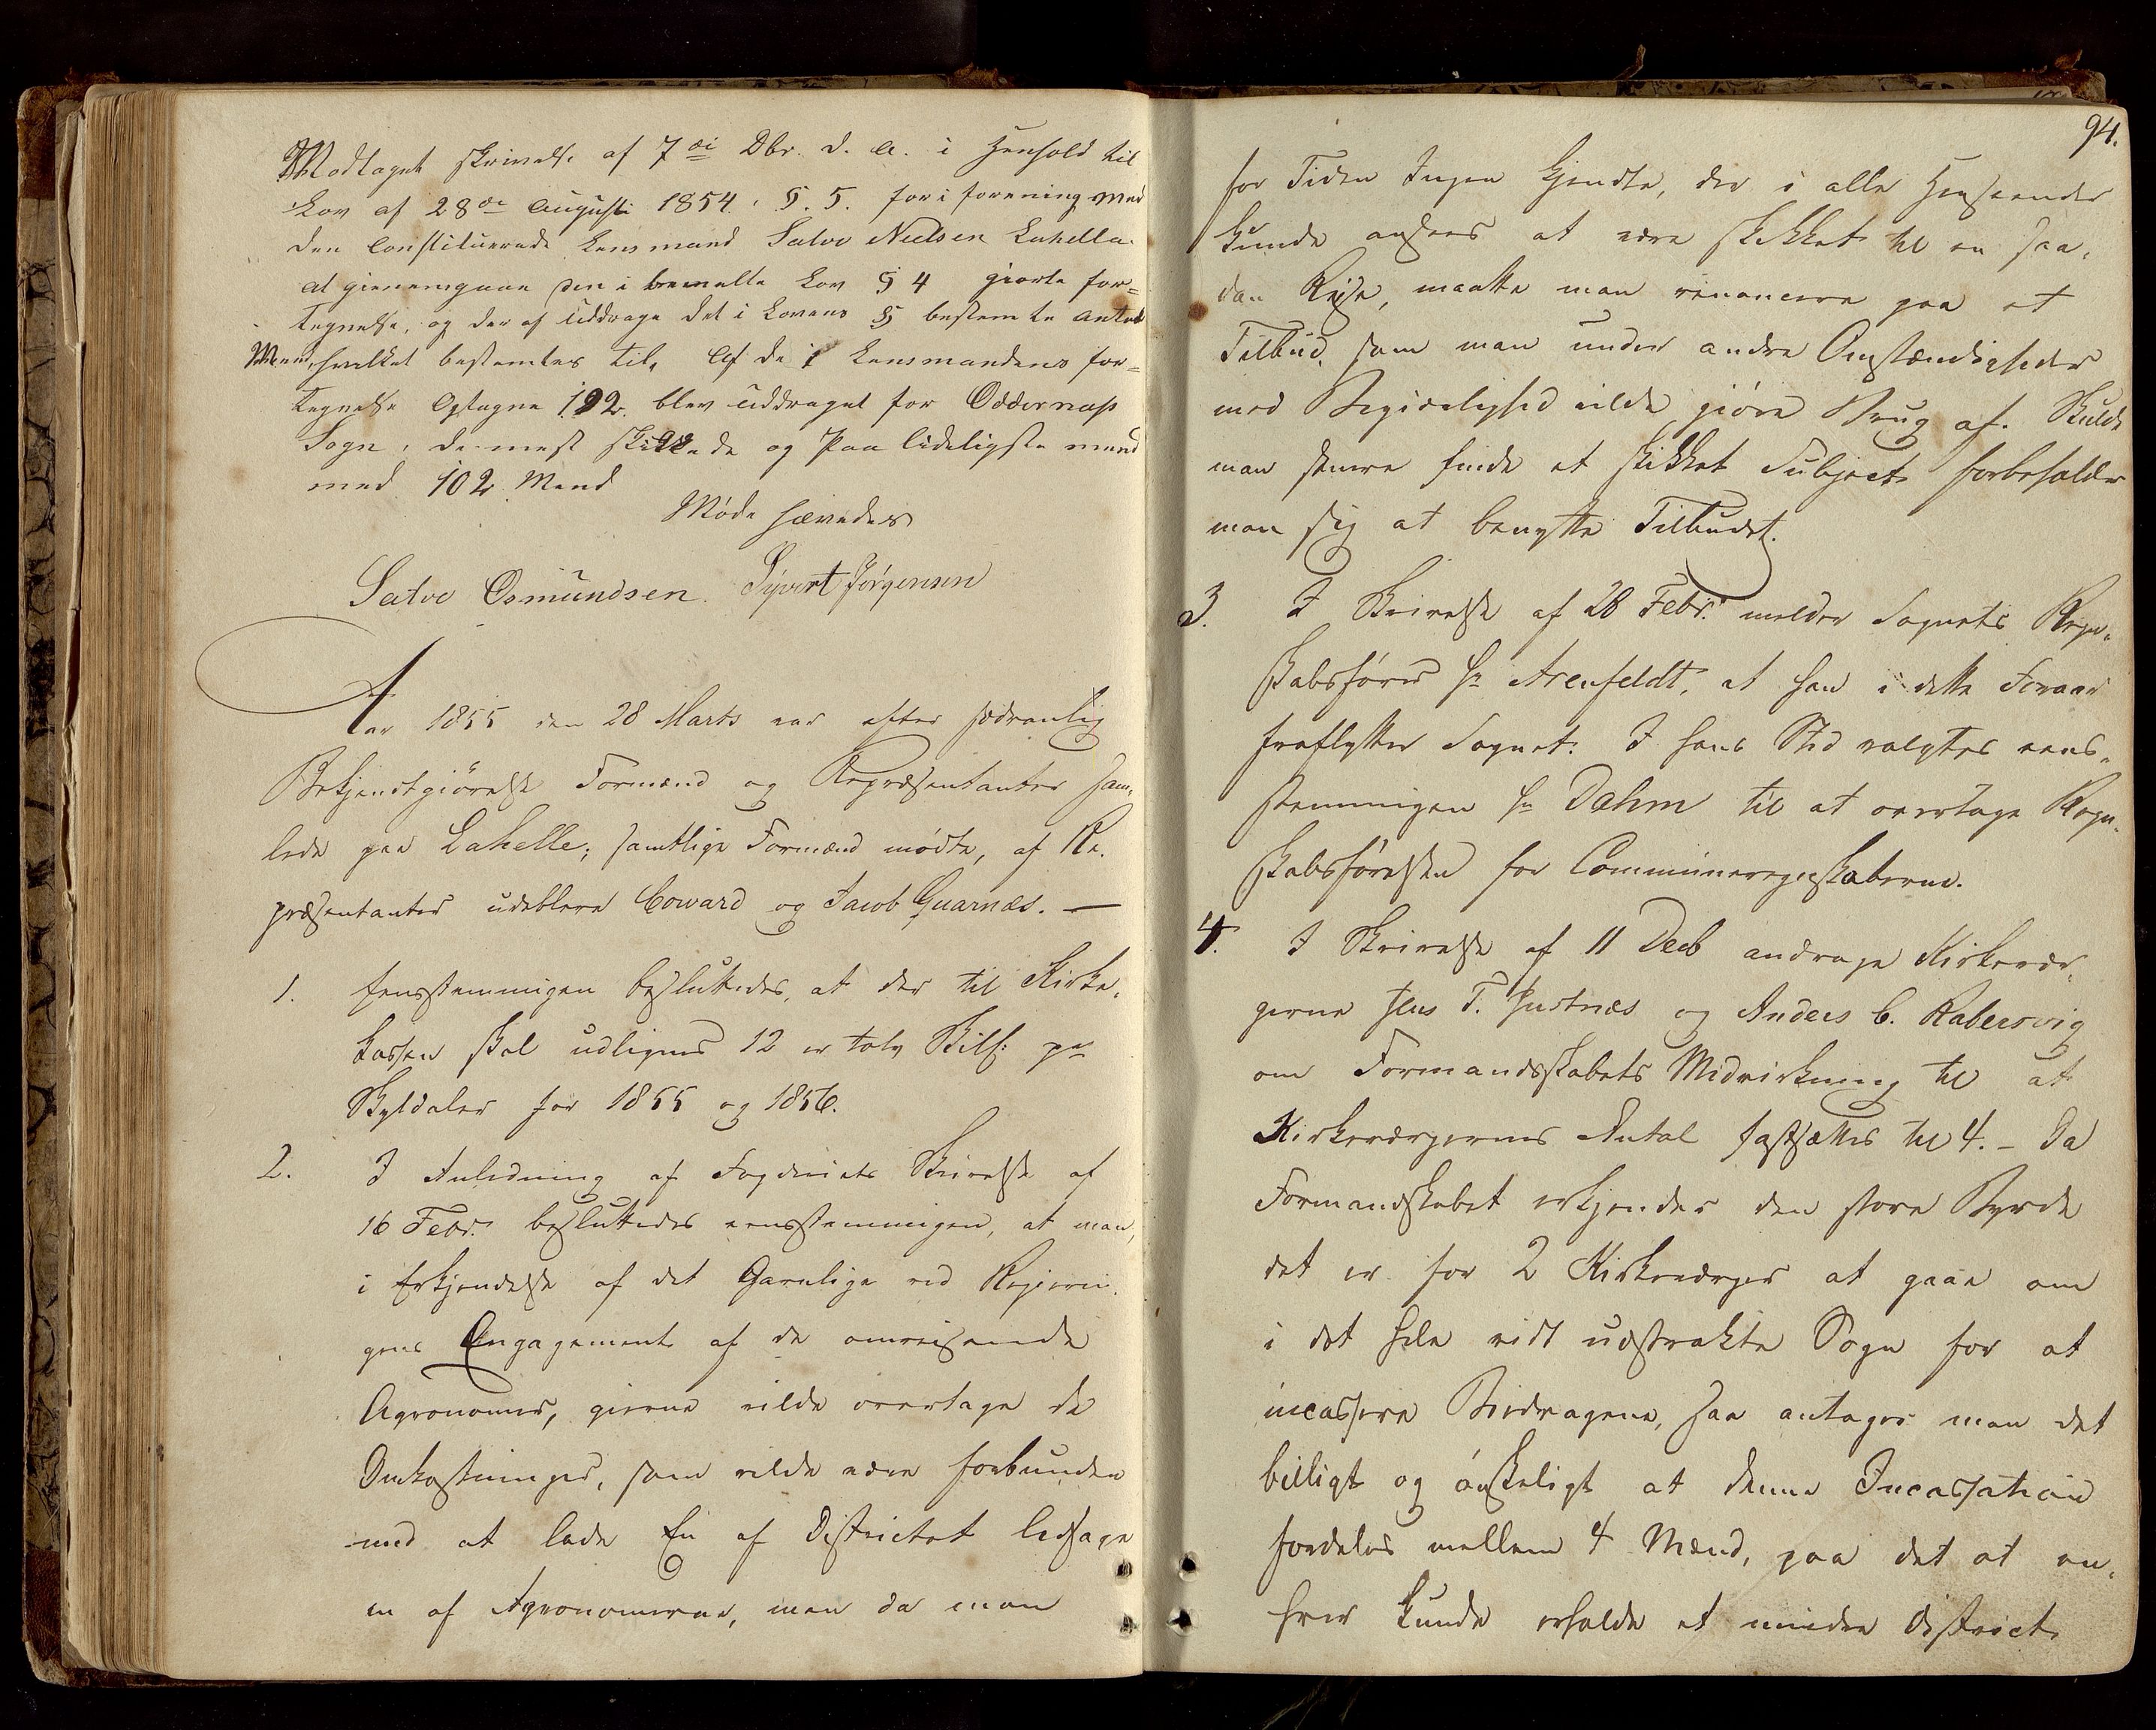 Modtaget skrivelse af 7de Dbr. d. A. i Henhold til
Lov af 28de Augusti 1854. §. 5. for i forening med
den Constituerede Lensmand Salve Nielsen Lahelle
at giennemgaae den i bemelte Lov § 4 giorte for=
tegnelse, og der af uddrage det i Lovens § bestemte Antal
Mend, hvilket bestemtes til, Af de i Lensmandens for=
tegnelse Optagne 192. blev uddraget for Oddernæs
Sogn, de mest skikkede og Paalideligste mend
med 102 Mend
Møde hævedes
Salve Osmundsen. Syvert Jørgensen
Aar 1855 den 28 Marts var efter sædvanlig
Bekjendtgiörelse Formænd og Repræsentanter sam,
lede paa Lahelle; samtlige Formænd mødte, af Re,
præsentanter udebleve Coward og Jacob Quarnæs. —
1. Eensstemmigen besluttedes, at der til Kirke,
kassen skal udlignes 12 er tolv Skill: pr
Skyldaler for 1855 og 1856.
2. I Anledning af Fogderiets Skrivelse af
16 Febr. besluttedes eensstemmigen, at man,
i Erkjendelse af det Gavnlige ved Regjerin,
gens Engagement af de omreisende
Agronomer, gierne vilde overtage de
Omkostninger, som vilde være forbunden
med at lade En af Districtet ledsage
en af Agronomerne, men da man
94.
for Tiden Ingen kjendte, der i alle Henseender
kunde ansees at være skikket til en saa,
dan Reise, maatte man renoncere paa et
Tilbud, som man under andre Omstændigheder
med Begjærlighed vilde giöre Brug af. Skulde
man senere finde et skikket Subject forbeholder
man sig at benytte Tilbudet.
3. I Skrivelse af 28 Febr. melder Sognets Regn,
skabsfører Hr Arenfeldt, at han i dette Foraar
fraflytter Sognet. I hans Sted valgtes eens,
stemmigen Hr Dahm til at overtage Regn,
skabsførelsen for Communeregnskaberne.
4. I Skrivelse af 11 Decb andrage Kirkevær,
gerne Jens T. Justnæs og Anders C. Rabersvig
om Formandskabets Medvirkning til at
Kirkeværgernes Antal fastsættes til 4. – Da
Formandskabet erkjender den store Byrde
det er for 2 Kirkeværger at gaae om
i det hele vidt udstrakte Sogn for at
incassere Bidragene, saa antager man det
billigt og ønskeligt at denne Incassation
fordeles mellem 4 Mænd, paa det at en,
hver kunde erholde et mindre District